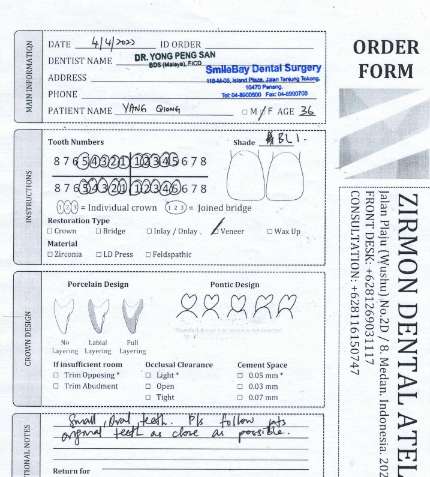 ORDER
FORM
MAIN INFORMATION
DATE 4/4/2022 ID ORDER
DENTIST NAME DR. YONG PENG SAN
BDS (Malaya), FICD
SmileBay Dental Surgery
118-M-05, Island Plaza, Jalan Tanjung Tokong,
10470 Penang.
Tel: 04-8900500 Fax: 04-8900700
ADDRESS
PHONE
PATIENT NAME YANG Qiong □ M / F AGE 36
INSTRUCTIONS
Tooth Numbers Shade BL1.
8 7 6 5 4 3 2 1 1 2 3 4 5 6 7 8
8 7 6 5 4 3 2 1 1 2 3 4 5 6 7 8
1 2 3 = Individual crown 1 2 3 = Joined bridge
Restoration Type
□ Crown □ Bridge □ Inlay / Onlay □ Veneer □ Wax Up
Material
□ Zirconia □ LD Press □ Feldspathic
CROWN DESIGN
Porcelain Design Pontic Design
No Labial Full
Layering Layering Layering
If insufficient room Occlusal Clearance Cement Space
□ Trim Opposing * □ Light * □ 0.05 mm *
□ Trim Abudment □ Open □ 0.03 mm
□ Tight □ 0.07 mm
TIONAL NOTES
Small, Oval teeth. Pls follow pts
original teeth as close as possible.
Return for
ZIRMON DENTAL ATEL
Jalan Plaju (Wushu) No.2D / 8. Medan. Indonesia. 202
FRONT DESK: +6281269031117
CONSULTATION: +628116150747